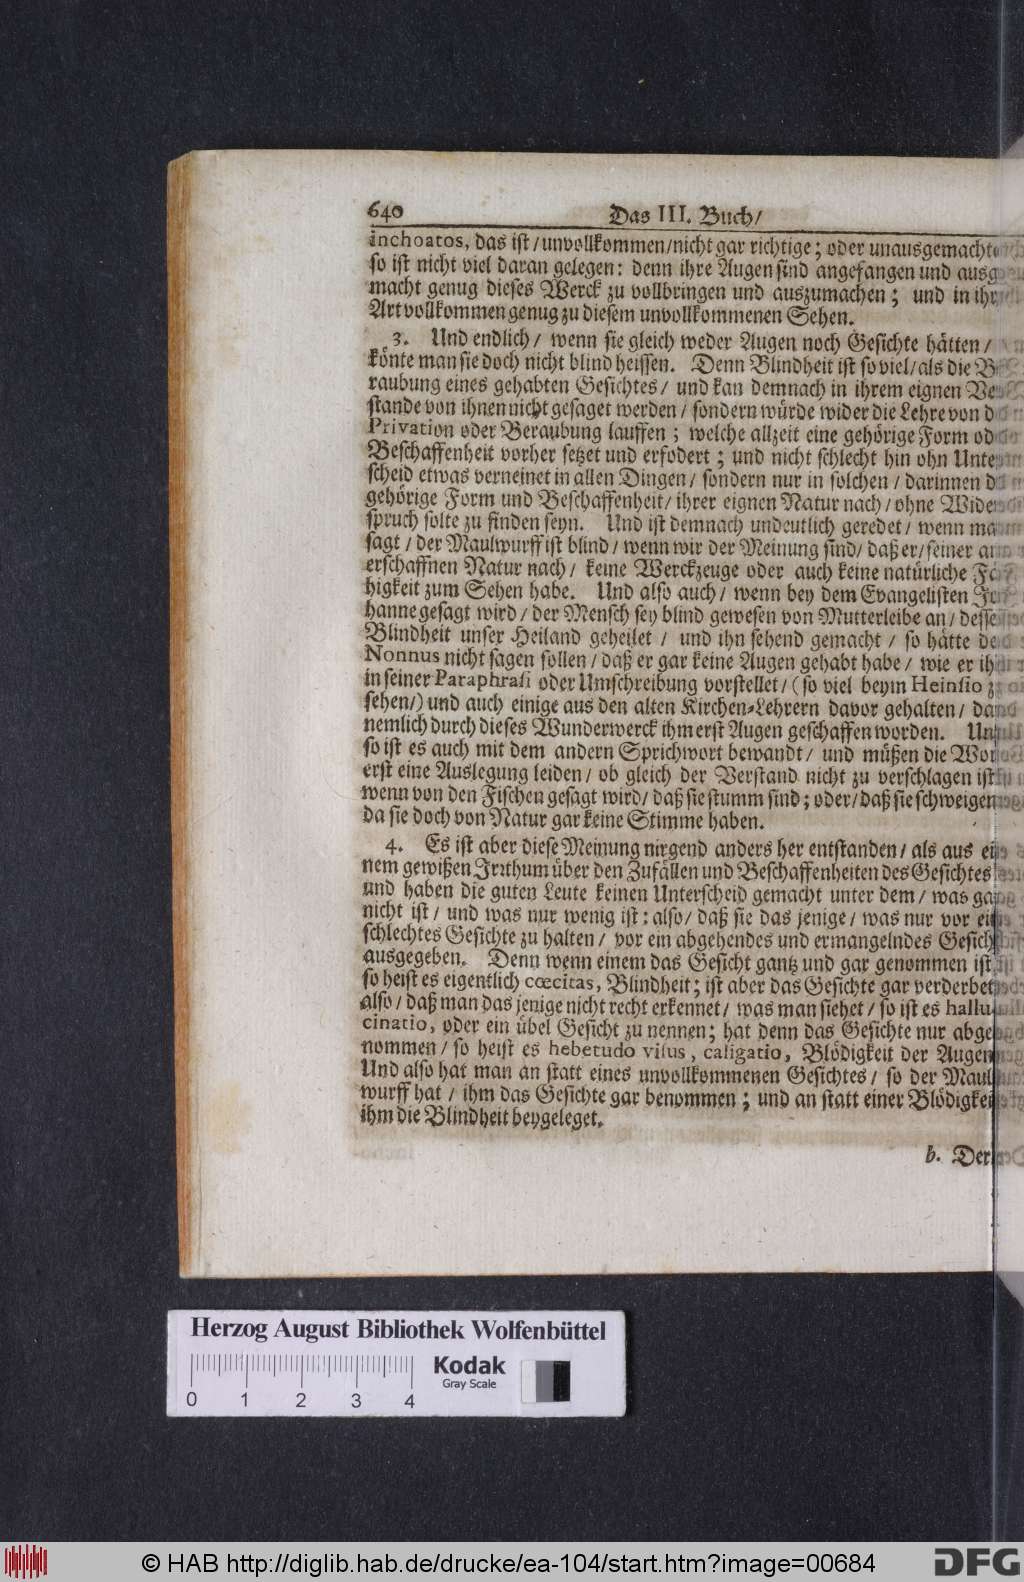 640
Das III. Buch/
inchoatos, das ist/unvollkommen/nicht gar richtige; oder unausgemachte
so ist nicht viel daran gelegen: denn ihre Augen sind angefangen und ausg
macht genug dieses Werck zu vollbringen und auszumachen; und in ihr
Art vollkommen genug zu diesem unvollkommenen Sehen.
3. Und endlich/ wenn sie gleich weder Augen noch Gesichte hätten/
könte man sie doch nicht blind heissen. Denn Blindheit ist so viel/als die B
raubung eines gehabten Gesichtes/ und kan demnach in ihrem eignen Ve
stande von ihnen nicht gesaget werden/ sondern würde wider die Lehre von d
Privation oder Beraubung lauffen; welche allzeit eine gehörige Form od
Beschaffenheit vorher setzet und erfodert; und nicht schlecht hin ohn Unter
scheid etwas verneinet in allen Dingen/ sondern nur in solchen/ darinnen d
gehörige Form und Beschaffenheit/ ihrer eignen Natur nach/ ohne Wider
spruch solte zu finden seyn. Und ist demnach undeutlich geredet/ wenn ma
sagt/ der Maulwurff ist blind/ wenn wir der Meinung sind/ daß er/seiner an
erschaffnen Natur nach/ keine Werckzeuge oder auch keine natürliche Fä
higkeit zum Sehen habe. Und also auch/ wenn bey dem Evangelisten Jo
hanne gesagt wird/ der Mensch sey blind gewesen von Mutterleibe an/ desse
Blindheit unser Heiland geheilet/ und ihn sehend gemacht/ so hätte de
Nonnus nicht sagen sollen/ daß er gar keine Augen gehabt habe/ wie er ih
in seiner Paraphrasi oder Umschreibung vorstellet/ (so viel beym Heinsio z
sehen/) und auch einige aus den alten Kirchen-Lehrern davor gehalten/ da
nemlich durch dieses Wunderwerck ihm erst Augen geschaffen worden. Un
so ist es auch mit dem andern Sprichwort bewandt/ und müßen die Wor
erst eine Auslegung leiden/ ob gleich der Verstand nicht zu verschlagen ist
wenn von den Fischen gesagt wird/ daß sie stumm sind; oder/ daß sie schweigen
da sie doch von Natur gar keine Stimme haben.
4. Es ist aber diese Meinung nirgend anders her entstanden/ als aus ei
nem gewißen Irrthum über den Zufällen und Beschaffenheiten des Gesichtes
und haben die guten Leute keinen Unterscheid gemacht unter dem/ was ga
nicht ist/ und was nur wenig ist: also/ daß sie das jenige/ was nur vor ei
schlechtes Gesichte zu halten/ vor ein abgehendes und ermangelndes Gesich
ausgegeben. Denn wenn einem das Gesicht gantz und gar genommen ist
so heist es eigentlich cœcitas, Blindheit; ist aber das Gesichte gar verderbet
also/ daß man das jenige nicht recht erkennet/ was man siehet/ so ist es hallu-
cinatio, oder ein übel Gesicht zu nennen; hat denn das Gesichte nur abge
nommen/ so heist es hebetudo visus, caligatio, Blödigkeit der Augen
Und also hat man an statt eines unvollkommenen Gesichtes/ so der Maul
wurff hat/ ihm das Gesichte gar benommen; und an statt einer Blödigkei
ihm die Blindheit beygeleget.
b. Der
Herzog August Bibliothek Wolfenbüttel
Kodak
Gray Scale
0 1 2 3 4
© HAB http://diglib.hab.de/drucke/ea-104/start.htm?image=00684
DFG